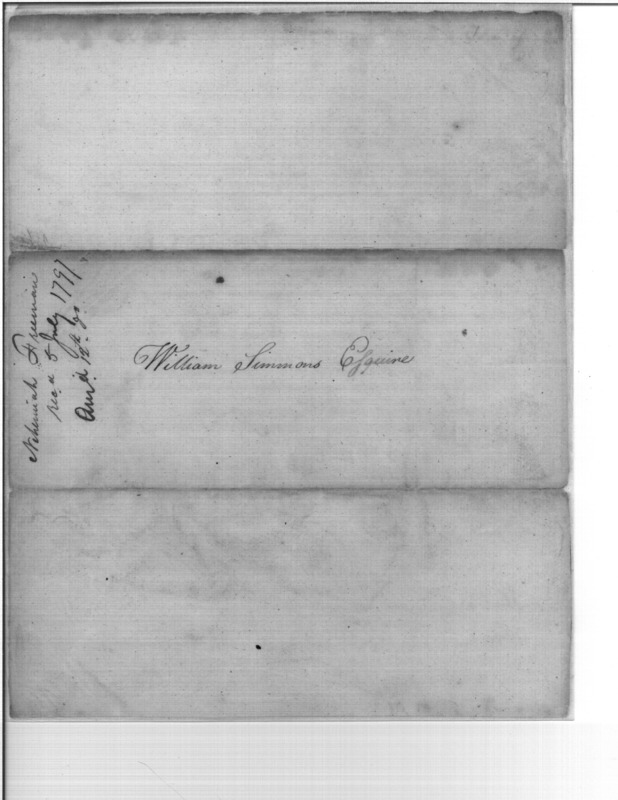 Nehemiah Freeman
rec.d 8 July 1797
An.d 12th do.
William Simmons Esquire